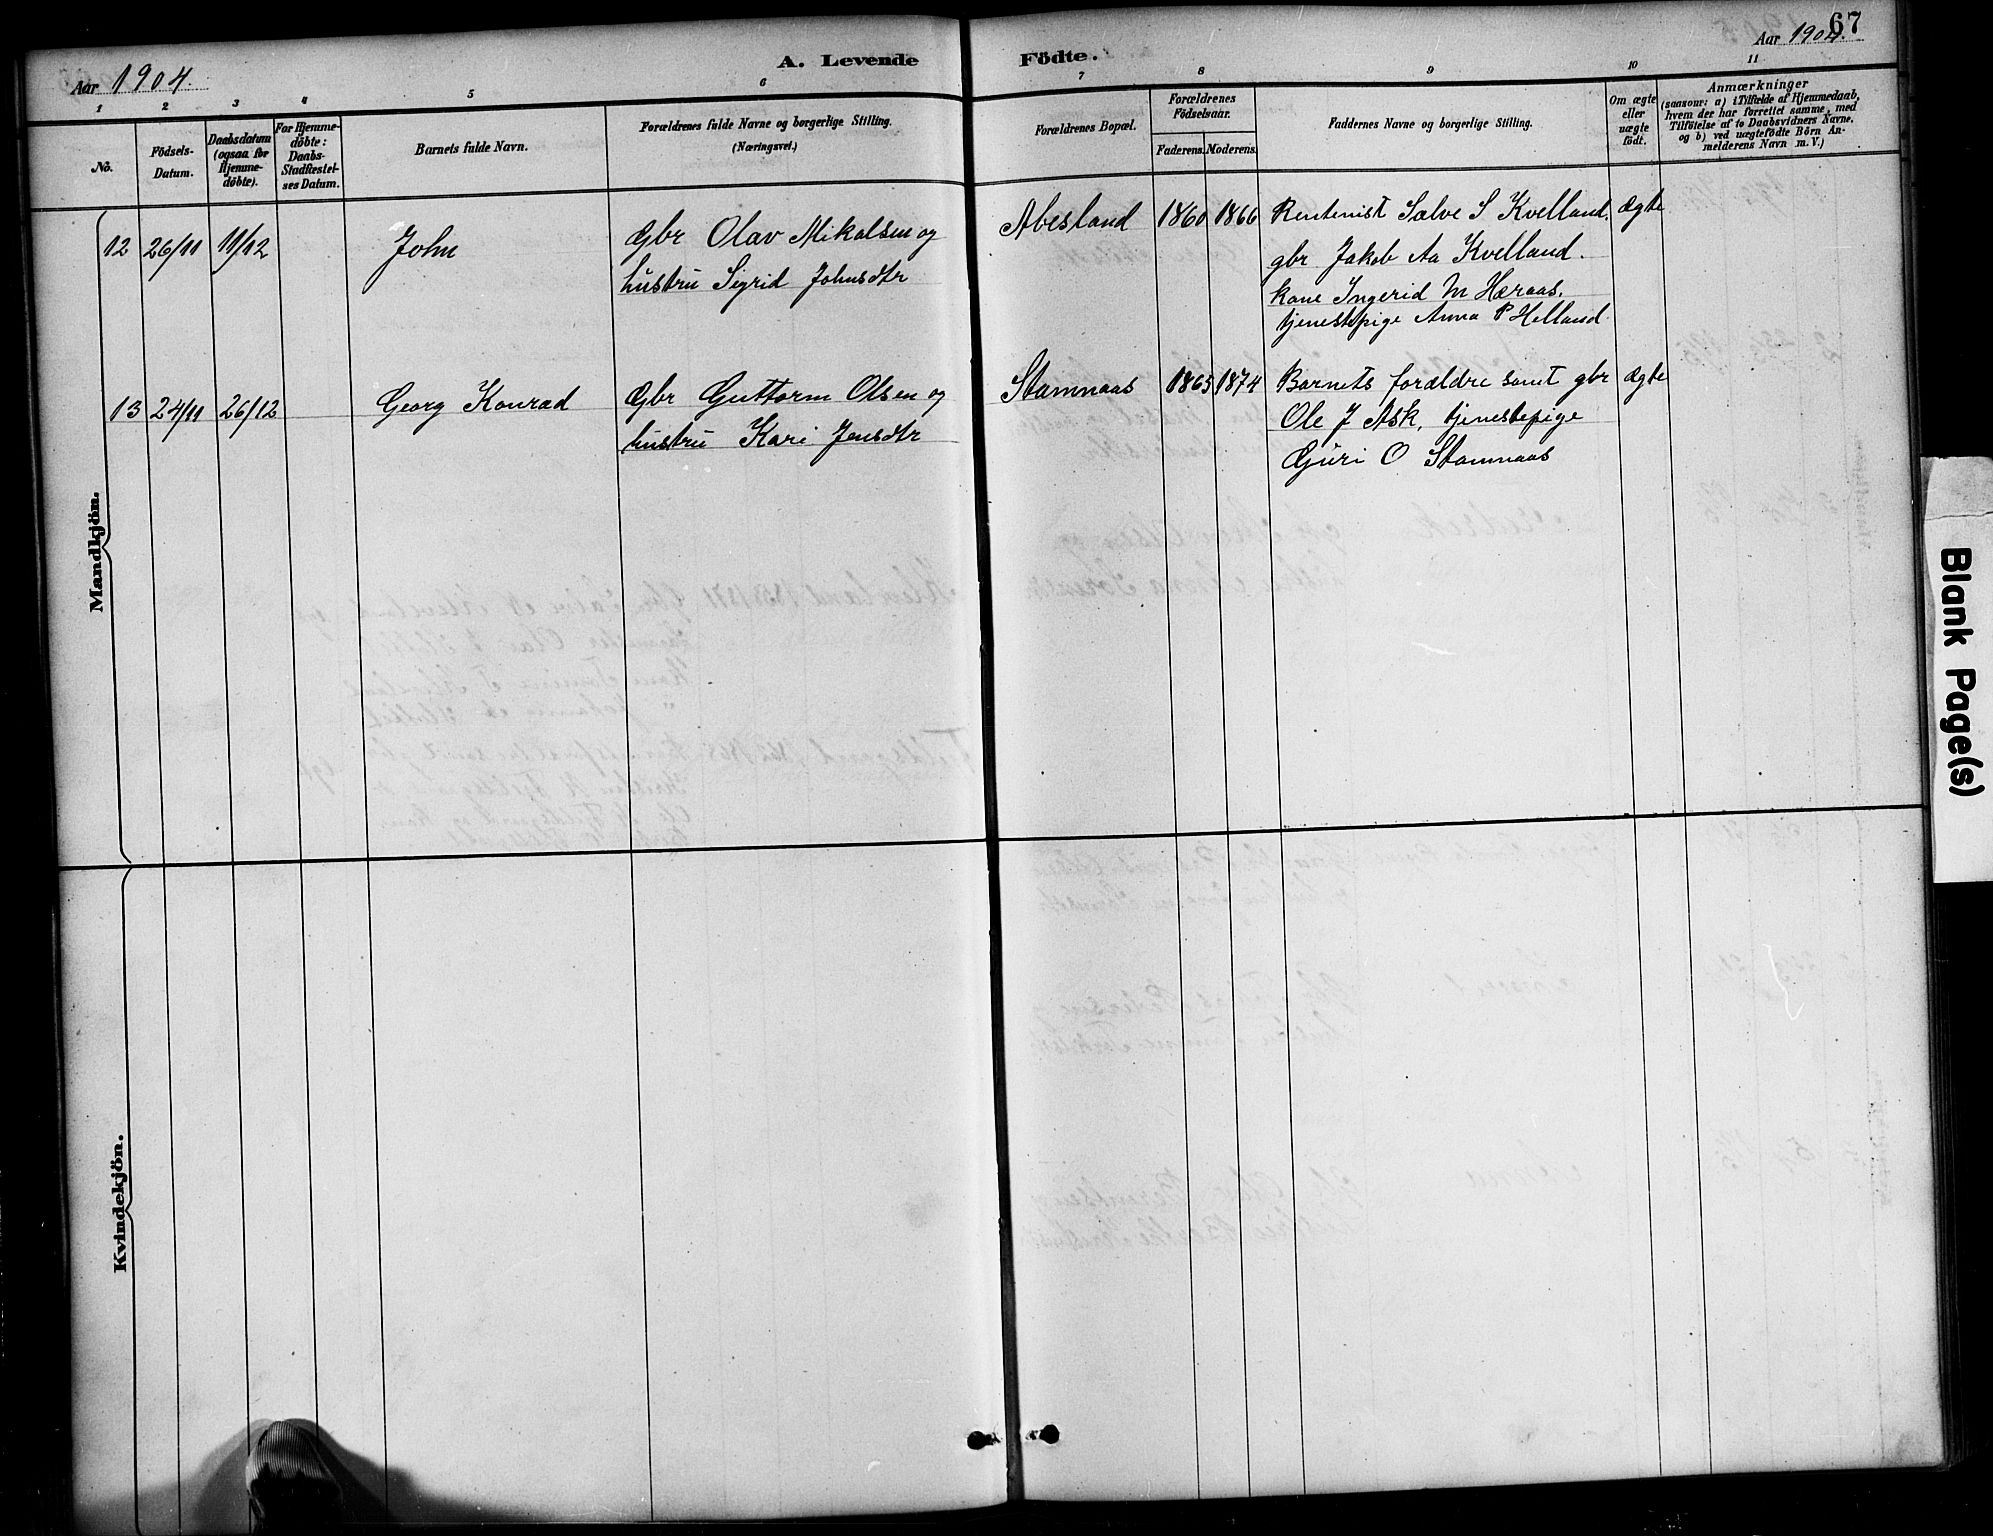 67
Aar 1904.
A. Levende Födte.
Aar 1904.
1 2 3 4 5 6 7 8 9 10 11
No.
Födsels-
Datum.
Daabsdatum
(ogsaa for
Hjemme-
döbte).
For Hjemme-
döbte:
Daabs-
Stadfæstel-
ses Datum.
Barnets fulde Navn.
Forældrenes fulde Navne og borgerlige Stilling.
(Næringsvei.)
Forældrenes Bopæl.
Forældrenes
Födselsaar.
Faderens. Moderens.
Faddernes Navne og borgerlige Stilling.
Om ægte
eller
uægte
födt.
Anmærkninger
(saasom: a) i Tilfælde af Hjemmedaab,
hvem der har forrettet samme, med
Tilföielse af to Daabsvidners Navne,
og b) ved uægtefödte Börn An-
melderens Navn m. V.)
Mandkjön.
12 26/11 11/12 John
Gbr Olav Mikalsen og
hustru Sigrid Johnsdtr
Abesland 1860 1866
Rentenist Salve S Kvelland.
gbr Jakob Aa Kvelland.
kone Ingerid M Høraas.
tjenestepige Anna P Helland
Ægte
13 24/11 26/12 Georg Konrad
Gbr Guttorm Olsen og
hustru Kari Jensdtr
Stamnaas 1865 1874
Barnets forældre samt gbr
Ole J Ask, tjenestepige
Guri O Stamnaas
Ægte
Kvindekjön.
Blank Page(s)